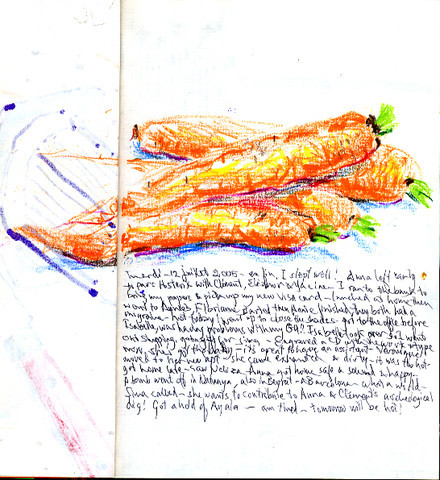 mardi - 12 juillet 2005 - enfin, I slept well! Anna left early
to parc Asterix with Clément, Eleonor & - I ran to the bank to
bring my papers & pick up my new Visa card - lunch at home then
went to Agnès, Fibriome started then panic finished, Agnès both had a
migraine - hot today! Went up to close the shades - got to the office before
Isabelle, was having problems w/ Harry G4! Isabelle took over so I went
out shopping, for Jing - Engraved a CD with the work & type
more, she got the - it's great to have an assistant - Véronique
moved to her new apt - she came exhausted & dirty - it was hot -
got home late - saw - Anna got home safe & sound & happy -
a bomb went off in Natanya, also in Beyrut - & Barcelona - what a world -
Gina called - she wants to contribute to Anna & Clément's archeological
dig! Got ahold of Ayala - am tired - tomorrow will be hot!